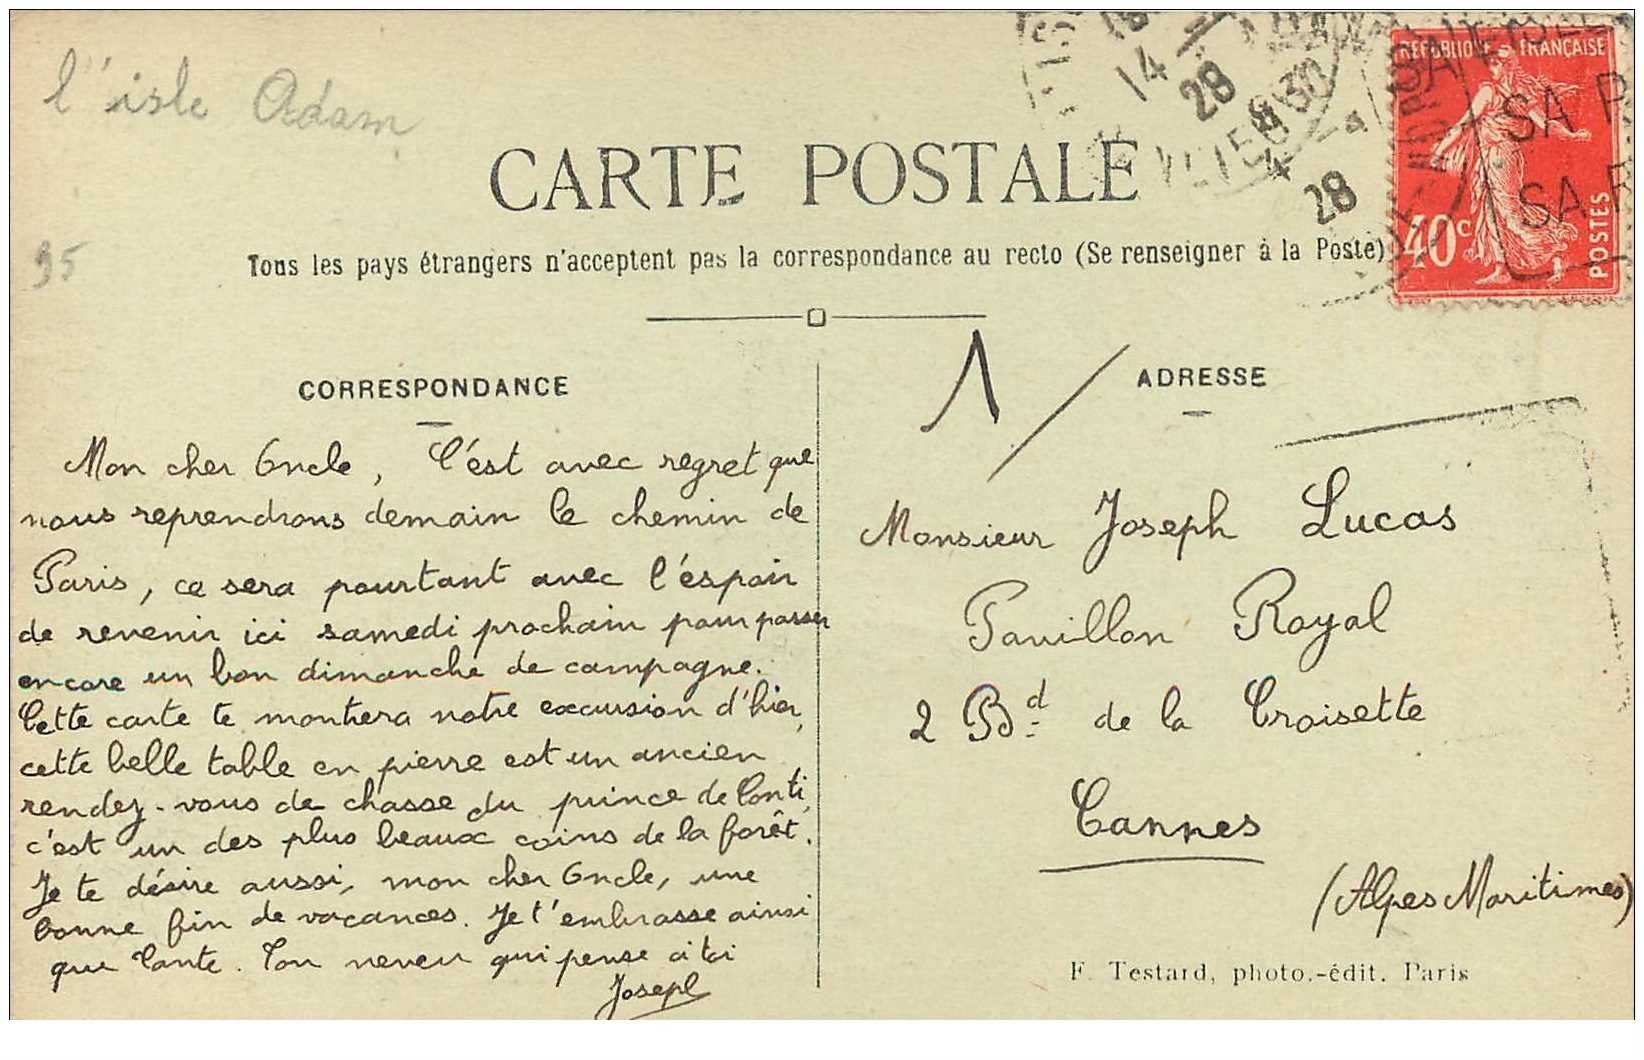 l'isle Adam
95
14
28
RÉPUBLIQUE FRANÇAISE
SA P
SA P
40c
POSTES
4
28
CARTE POSTALE
Tous les pays étrangers n'acceptent pas la correspondance au recto (Se renseigner à la Poste)
CORRESPONDANCE
Mon cher Oncle, C'est avec regret que
nous reprendrons demain le chemin de
Paris, ce sera pourtant avec l'espoir
de revenir ici samedi prochain pour passer
encore un bon dimanche de campagne.
Cette carte te montrera notre excursion d'hier,
cette belle table en pierre est un ancien
rendez-vous de chasse du prince de Conti,
c'est un des plus beaux coins de la forêt.
Je te désire aussi, mon cher Oncle, une
bonne fin de vacances. Je t'embrasse ainsi
que Tante. Ton neveu qui pense à toi
Joseph
1/
ADRESSE
Monsieur Joseph Lucas
Pavillon Royal
2 Bd de la Croisette
Cannes
(Alpes Maritimes)
F. Testard, photo.-édit. Paris